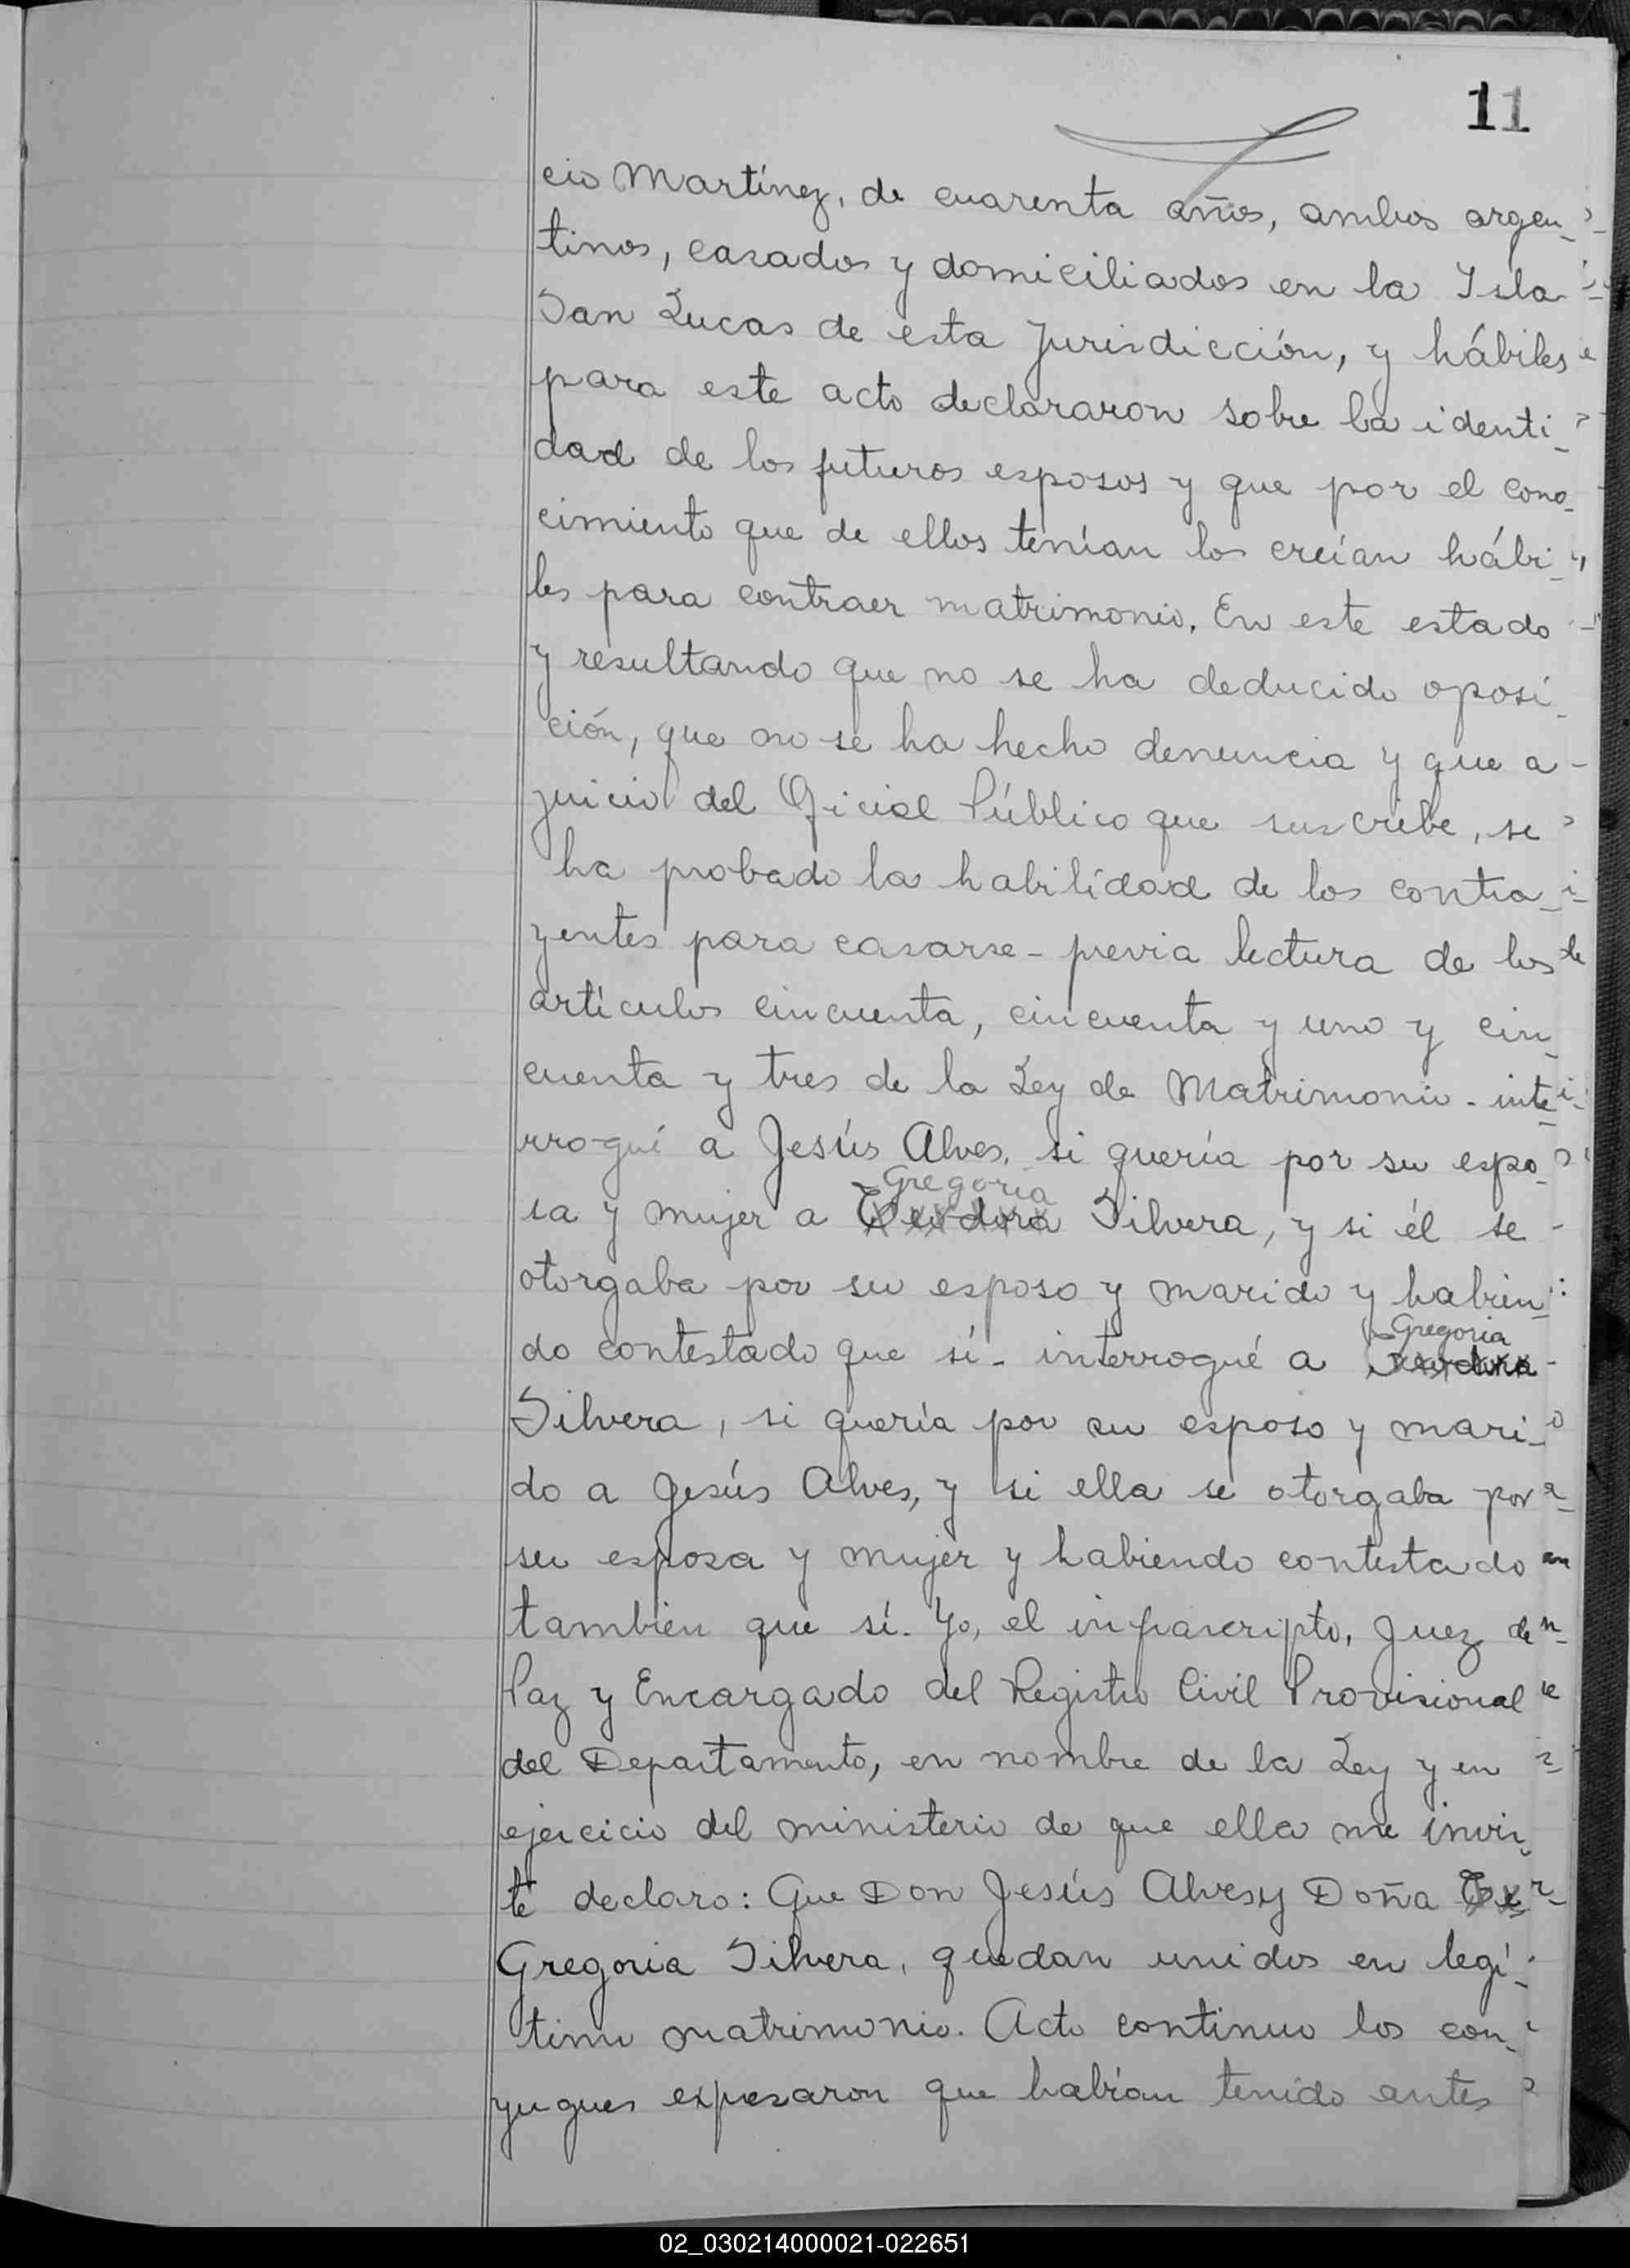 11
cio Martínez, de cuarenta años, ambos argen_
tinos, casados y domiciliados en la Isla
San Lucas de esta Jurisdicción, y hábiles
para este acto declararon sobre la identi_
dad de los futuros esposos y que por el cono_
cimiento que de ellos tenían los creían hábi_
les para contraer matrimonio. En este estado
y resultando que no se ha deducido oposi_
ción, que no se ha hecho denuncia y que a
juicio del Oficial Público que suscribe, se
ha probado la habilidad de los contra_
yentes para casarse - previa lectura de los
artículos cincuenta, cincuenta y uno y cin_
cuenta y tres de la Ley de Matrimonio - inte_
rrogué a Jesús Alves, si quería por su espo_
Gregoria
sa y mujer a Teodora Silvera, y si él se
otorgaba por su esposo y marido y habien_
Gregoria
do contestado que sí - interrogué a Teodora
Silvera, si quería por su esposo y mari_
do a Jesús Alves, y si ella se otorgaba por
su esposa y mujer y habiendo contestado
también que sí. Yo, el infrascripto, Juez de
Paz y Encargado del Registro Civil Provisional
del Departamento, en nombre de la Ley y en
ejercicio del ministerio de que ella me invis_
te declaro: Que Don Jesús Alves y Doña Te
Gregoria Silvera, quedan unidos en legí_
timo matrimonio. Acto continuo los con_
yugues expesaron que habían tenido antes
02_030214000021-022651